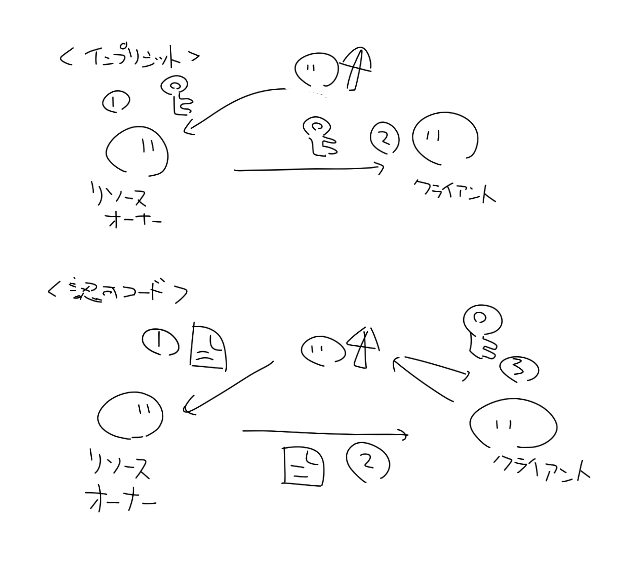 ＜インプリシット＞
①
②
リソース
オーナー
クライアント
＜認可コード＞
①
③
②
リソース
オーナー
クライアント